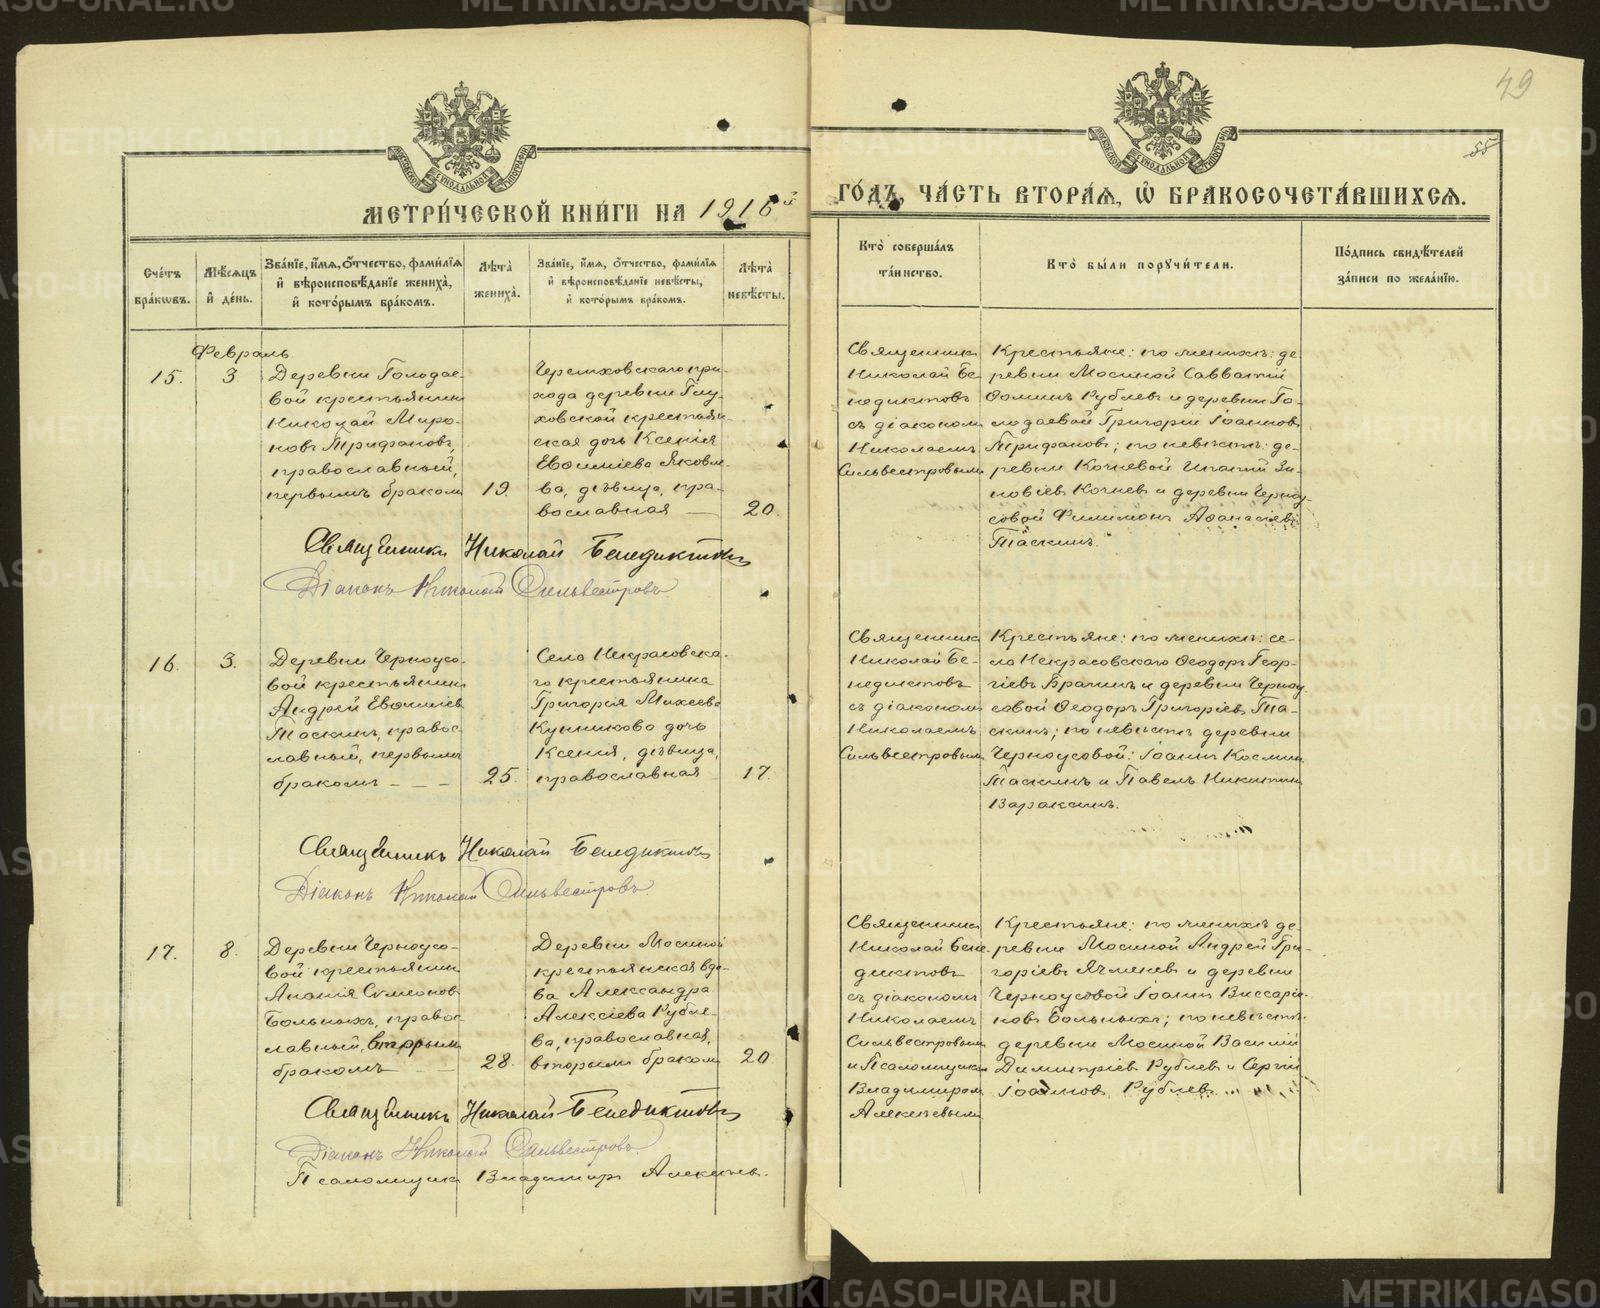 49
55
МЕТРИ́ЧЕСКОЙ КНИ́ГИ НА 1916 й
ГО́ДЪ, ЧА́СТЬ ВТОРА́Я, Ѡ҆ БРАКОСОЧЕТА́ВШИХСЯ.
Сче́тъ бра́ковъ.
Мѣ́сяцъ и҆ де́нь.
Зва́нїе, и҆́мя, ѻ҆́тчество, фами́лїя и҆ вѣроисповѣ́данїе жениха̀, и҆ кото́рымъ бра́комъ.
Лѣта̀ жениха̀.
Зва́нїе, и҆́мя, ѻ҆́тчество, фами́лїя и҆ вѣроисповѣ́данїе невѣ́сты, и҆ кото́рымъ бра́комъ.
Лѣта̀ невѣ́сты.
Кто̀ соверша́лъ та́инство.
Кто̀ бы́ли поручи́тели.
По́дпись свидѣ́телей за́писи по жела́нїю.
Февраль
15.
3.
Деревни Голодае-
вой крестьянинъ
Николай Миро-
новъ Трифановъ,
православный,
первымъ бракомъ
19.
Черемховскаго при-
хода деревни Глу-
ховской крестьян-
ская дочь Ксенія
Евѳиміева Яковле-
ва, дѣвица, пра-
вославная —
20.
Священникъ
Николай Бе-
недиктовъ
съ діакономъ
Николаемъ
Сильвестровымъ
Крестьяне: по женихѣ: де
ревни Мосиной Савватій
Ѳоминъ Рублевъ и деревни Го-
лодаевой Григорій Іоанновъ
Трифановъ; по невѣстѣ: де-
ревни Кочневой Ипатій Зи-
новіевъ Кочневъ и деревни Черноу-
совой Филимонъ Аѳанасіевъ
Таскинъ.
Священникъ Николай Бенедиктовъ
Діаконъ Николай Сильвестровъ
16.
3.
Деревни Черноусо-
вой крестьянинъ
Андрей Евѳиміевъ
Таскинъ, правос-
лавный, первымъ
бракомъ — — —
25.
Села Некрасовска-
го крестьянина
Григорія Михеева
Кунникова дочь
Ксенія, дѣвица,
православная
17.
Священникъ
Николай Бе-
недиктовъ
съ діакономъ
Николаемъ
Сильвестровымъ
Крестьяне: по женихѣ: се-
ла Некрасовскаго Ѳеодоръ Геор-
гіевъ Брагинъ и деревни Черноу
совой Ѳеодоръ Григорьевъ Та-
скинъ; по невѣстѣ деревни
Черноусовой: Іоаннъ Космин
Таскинъ и Павелъ Никитинъ
Вараксинъ.
Священникъ Николай Бенедиктовъ
Діаконъ Николай Сильвестровъ.
17.
8.
Деревни Черноусо-
вой крестьянинъ
Ананія Сѵмеоновъ
Больныхъ, правос-
лавный, вторымъ
бракомъ — —
28.
Деревни Мосиной
крестьянская вдо-
ва Александра
Алексіева Рубле-
ва, православная,
вторымъ бракомъ
20.
Священникъ
Николай Бене-
диктовъ
съ діакономъ
Николаемъ
Сильвестровымъ
и Псаломщикомъ
Владимиромъ
Алексѣевымъ
Крестьяне: по женихѣ де
ревни Мосиной Андрей Гри-
горіевъ Ячменевъ и деревни
Черноусовой Іоаннъ Виссаріо
новъ Больныхъ; по невѣстѣ:
деревни Мосиной Василій
Димитріевъ Рублевъ и Сергій
Іоанновъ Рублевъ.
Священникъ Николай Бенедиктовъ
Діаконъ Николай Сильвестровъ.
Псаломщикъ Владимиръ Алексѣевъ.
METRIKI.GASO-URAL.RU